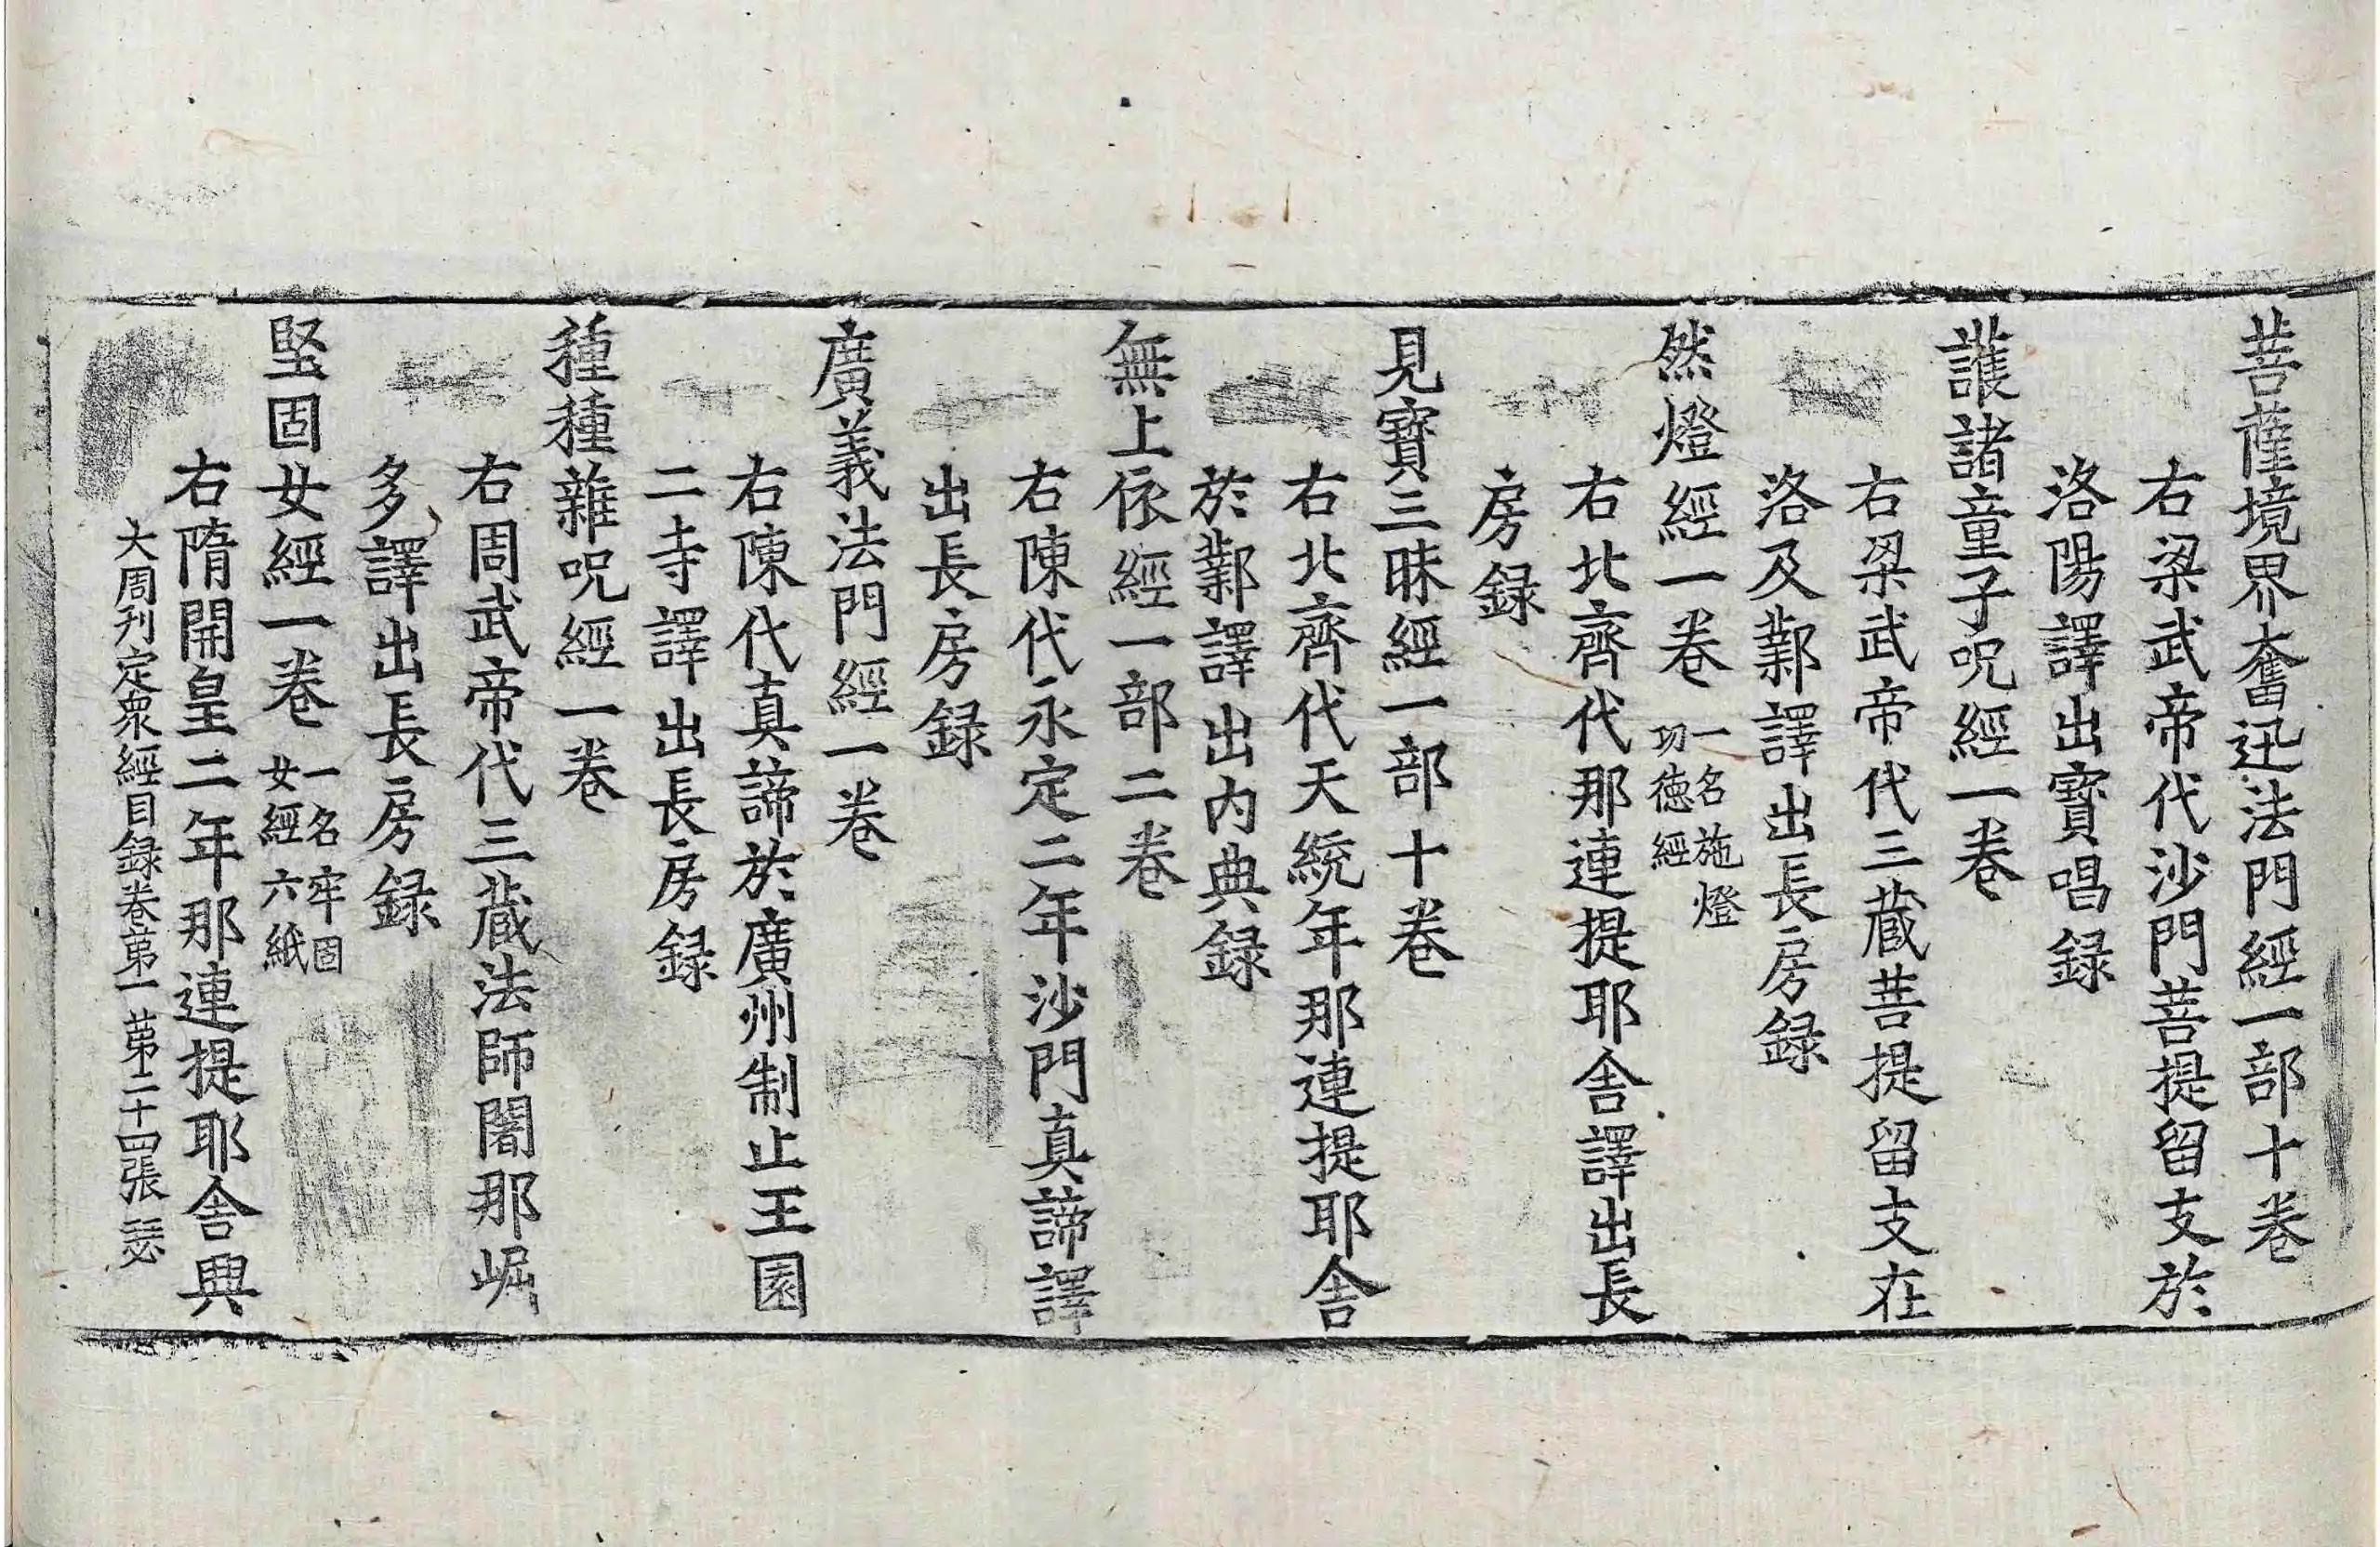 菩薩境界奮迅法門經一部十卷
右梁武帝代沙門菩提留支於
洛陽譯出寶唱録
護諸童子呪經一卷
右梁武帝代三藏菩提留支在
洛及鄴譯出長房録
然燈經一卷 一名施燈
功德經
右北齊代那連提耶舍譯出長
房録
見寶三昧經一部十卷
右北齊代天統年那連提耶舍
於鄴譯出內典録
無上依經一部二卷
右陳代永定二年沙門真諦譯
出長房録
廣義法門經一卷
右陳代真諦於廣州制止王園
二寺譯出長房録
種種雜呪經一卷
右周武帝代三藏法師闍那崛
多譯出長房録
堅固女經一卷 一名牢固
女經六紙
右隋開皇二年那連提耶舍與
大周刊定衆經目録卷第一 第二十四張 瑟